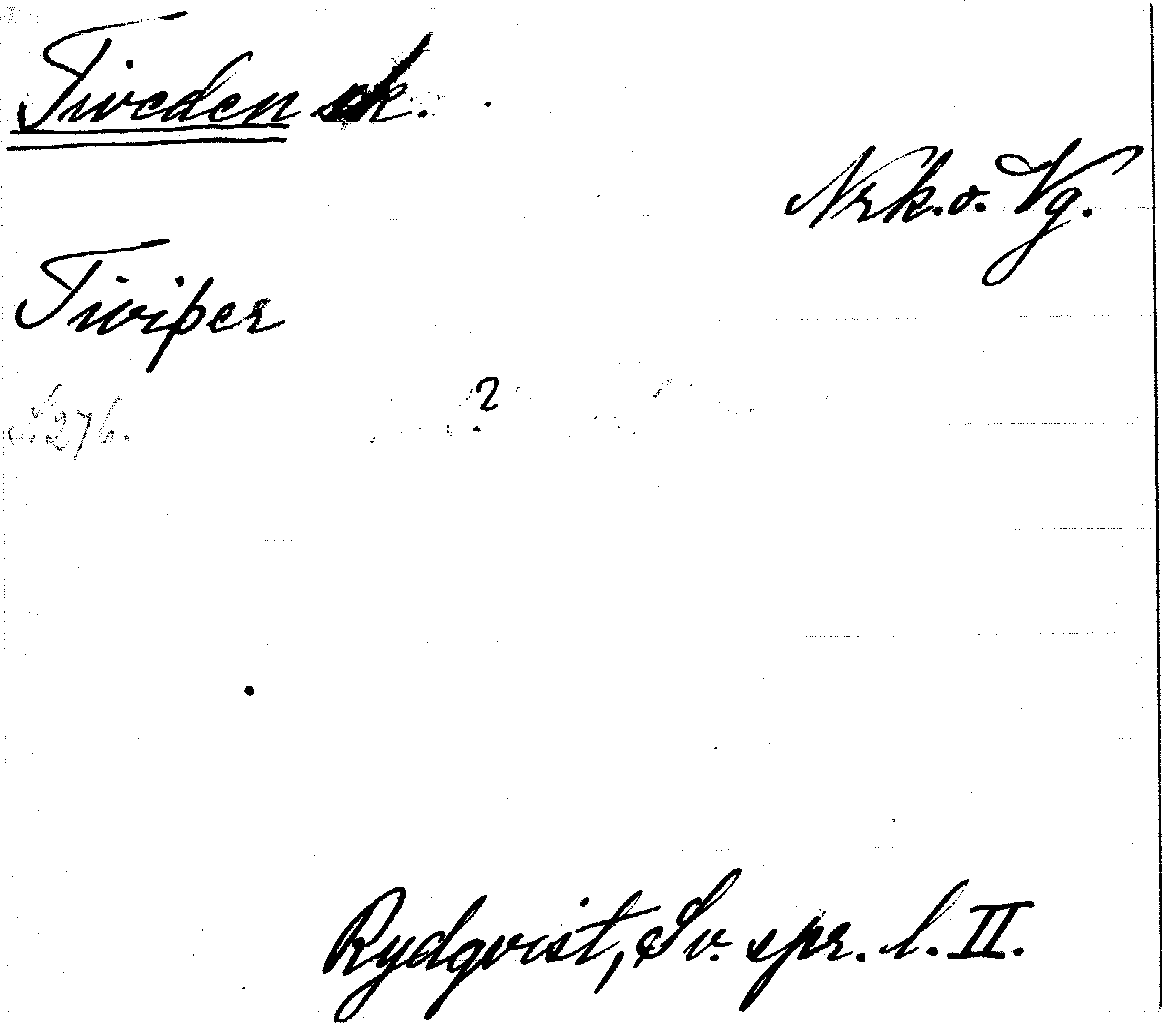 Tiveden sk.
Nrk. o. Vg.
Tiviþer
S. 276.
?
Rydqvist, Sv. spr. l. II.